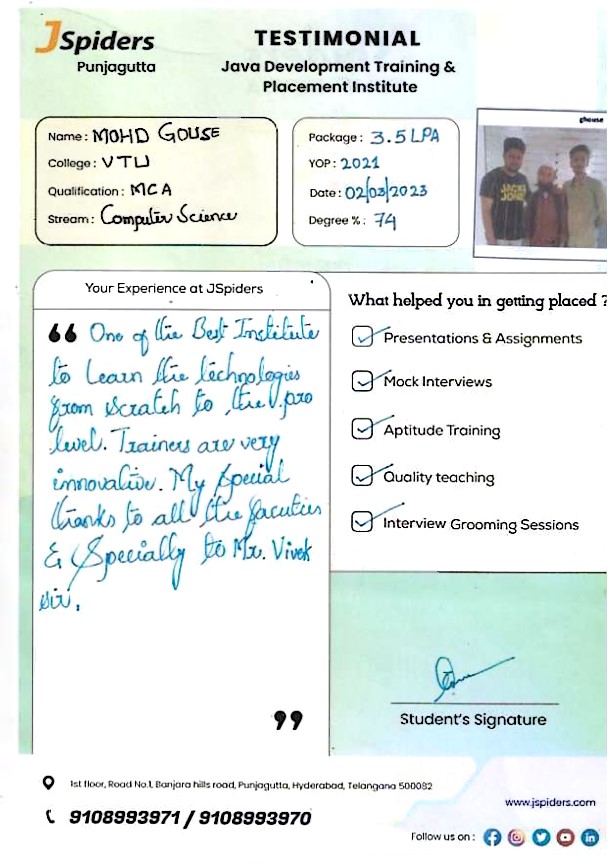 JSpiders
Punjagutta
TESTIMONIAL
Java Development Training &
Placement Institute
Name : MOHD GOUSE
College : VTU
Qualification : MCA
Stream : Computer Science
Package : 3.5 LPA
YOP : 2021
Date : 02/03/2023
Degree % : 74
ghouse
JACK&
JONES
Your Experience at JSpiders
“ One of the Best Institute
to Learn the technologies
from scratch to the pro
level. Trainers are very
innovative. My special
thanks to all the faculties
& Specially to Mr. Vivek
sir.
”
What helped you in getting placed ?
Presentations & Assignments
Mock Interviews
Aptitude Training
Quality teaching
Interview Grooming Sessions
Student's Signature
1st floor, Road No.1, Banjara hills road, Punjagutta, Hyderabad, Telangana 500082
9108993971 / 9108993970
www.jspiders.com
Follow us on :